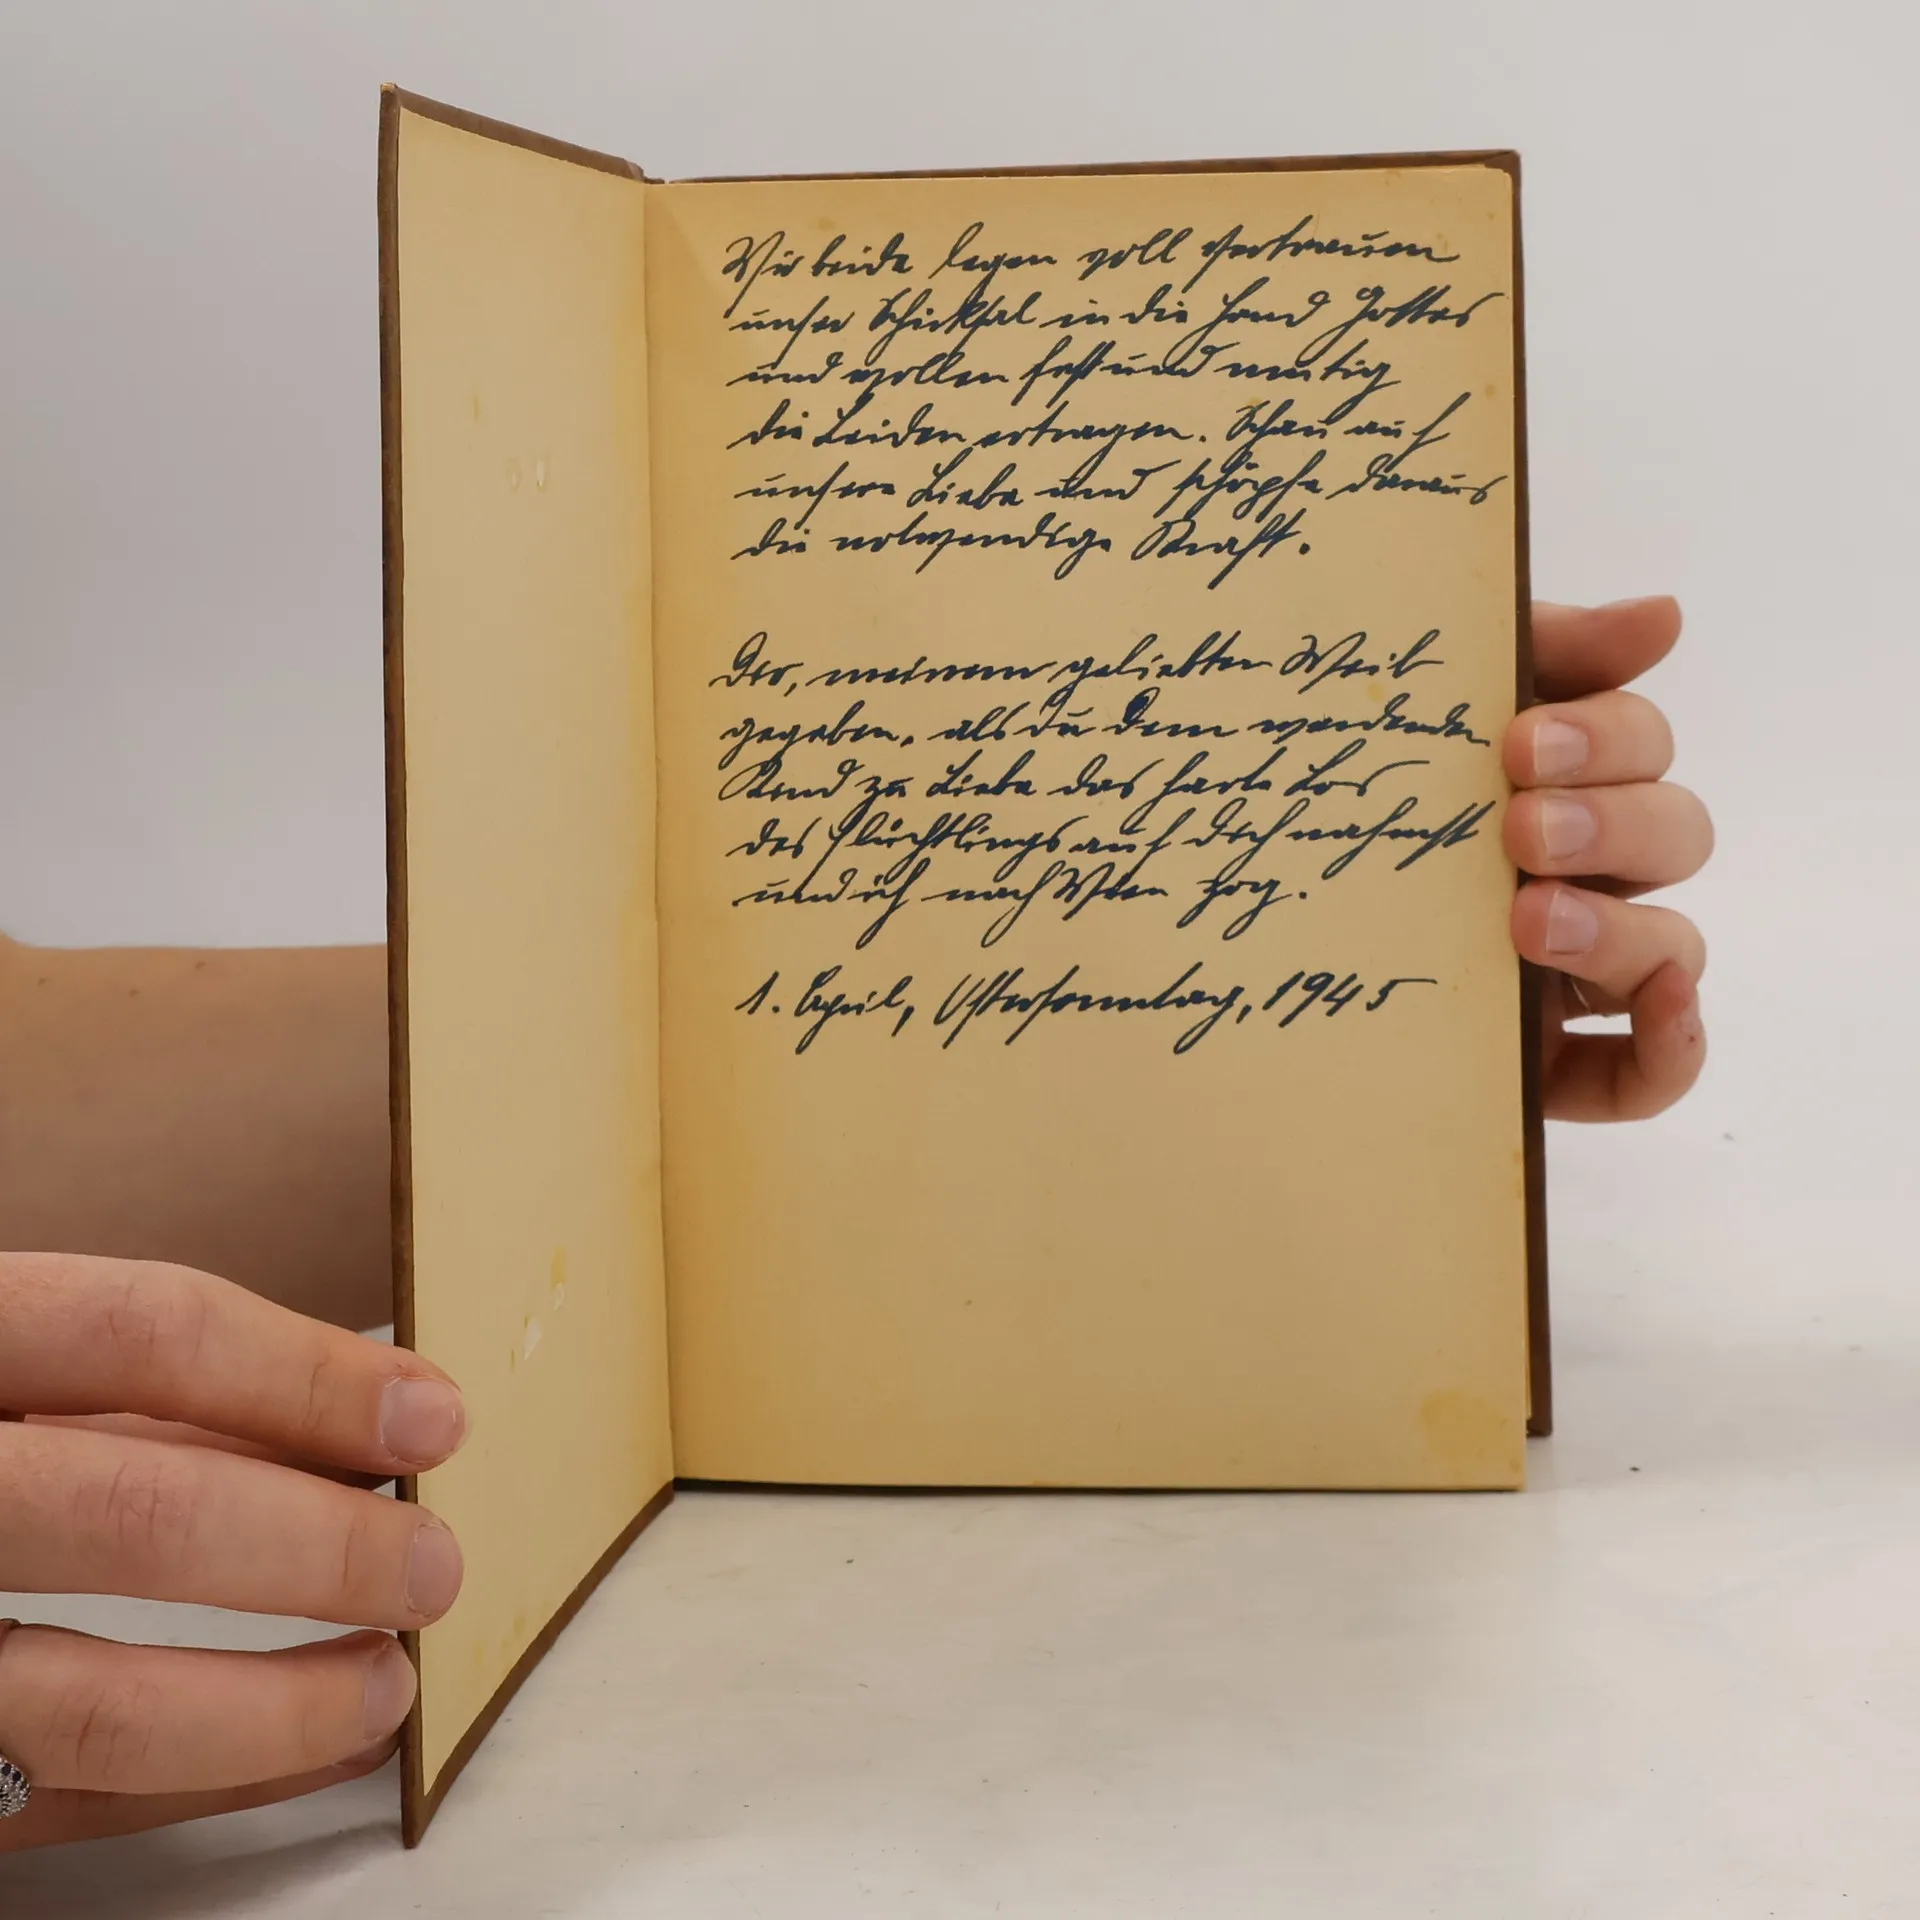 Wir beide legen voll Vertrauen
unser Schicksal in die Hand Gottes
und wollen fest und mutig
die Leiden ertragen. Schau auf
unsere Liebe und schöpfe daraus
die notwendige Kraft.
Dir, meinem geliebten Weib
gegeben, als du dem werdenden
Kind zu Liebe das harte Los
des Flüchtlings auf dich nahmst
und ich nach Wien zog.
1. April, Ostersonntag, 1945